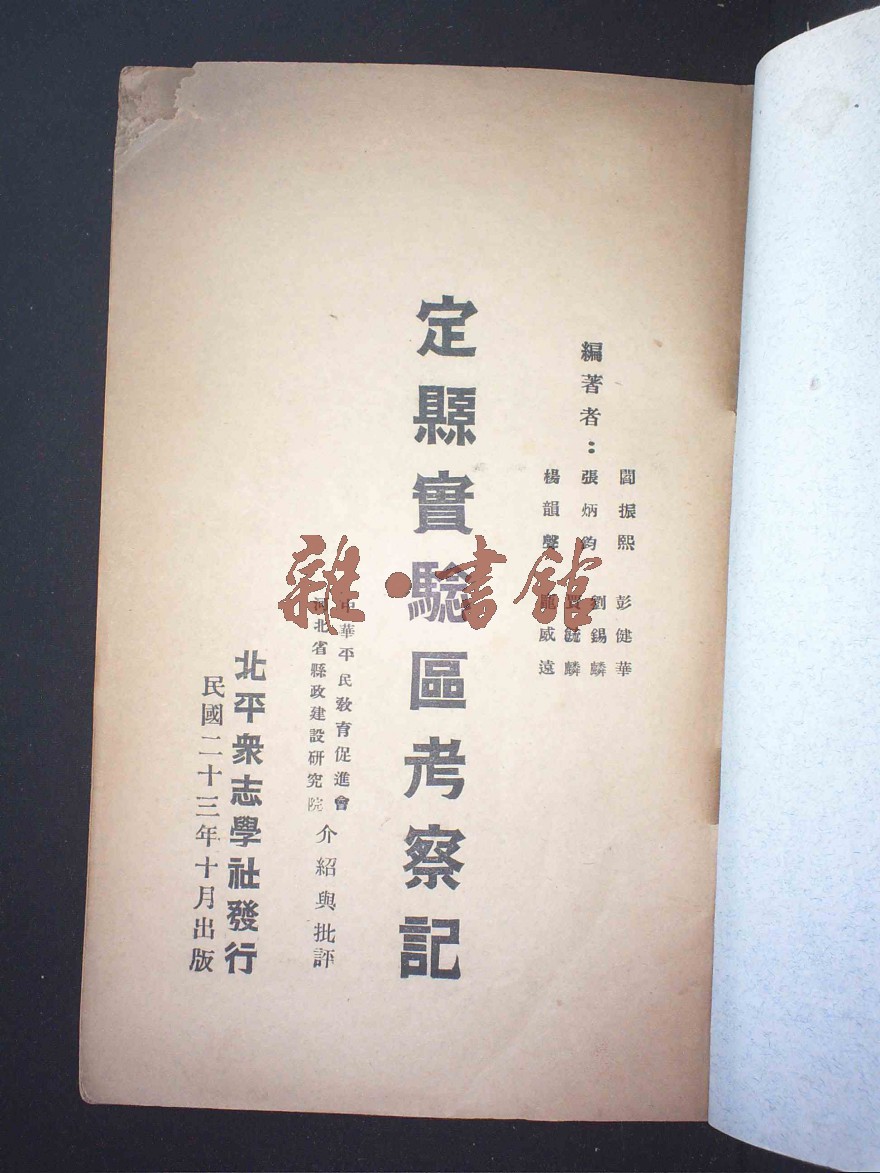 編著者：
閻振熙 彭健華
張炳鈞 劉錫麟
賈毓麟
楊韻 威遠
定縣實驗區考察記
中華平民教育促進會
河北省縣政建設研究院
介紹與批評
北平衆志學社發行
民國二十三年十月出版
雜·書館